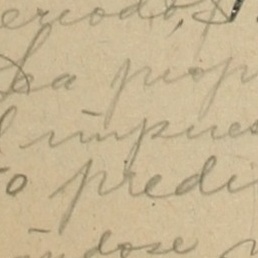 eriodo, S
La prop
l impues
to predi
ándose